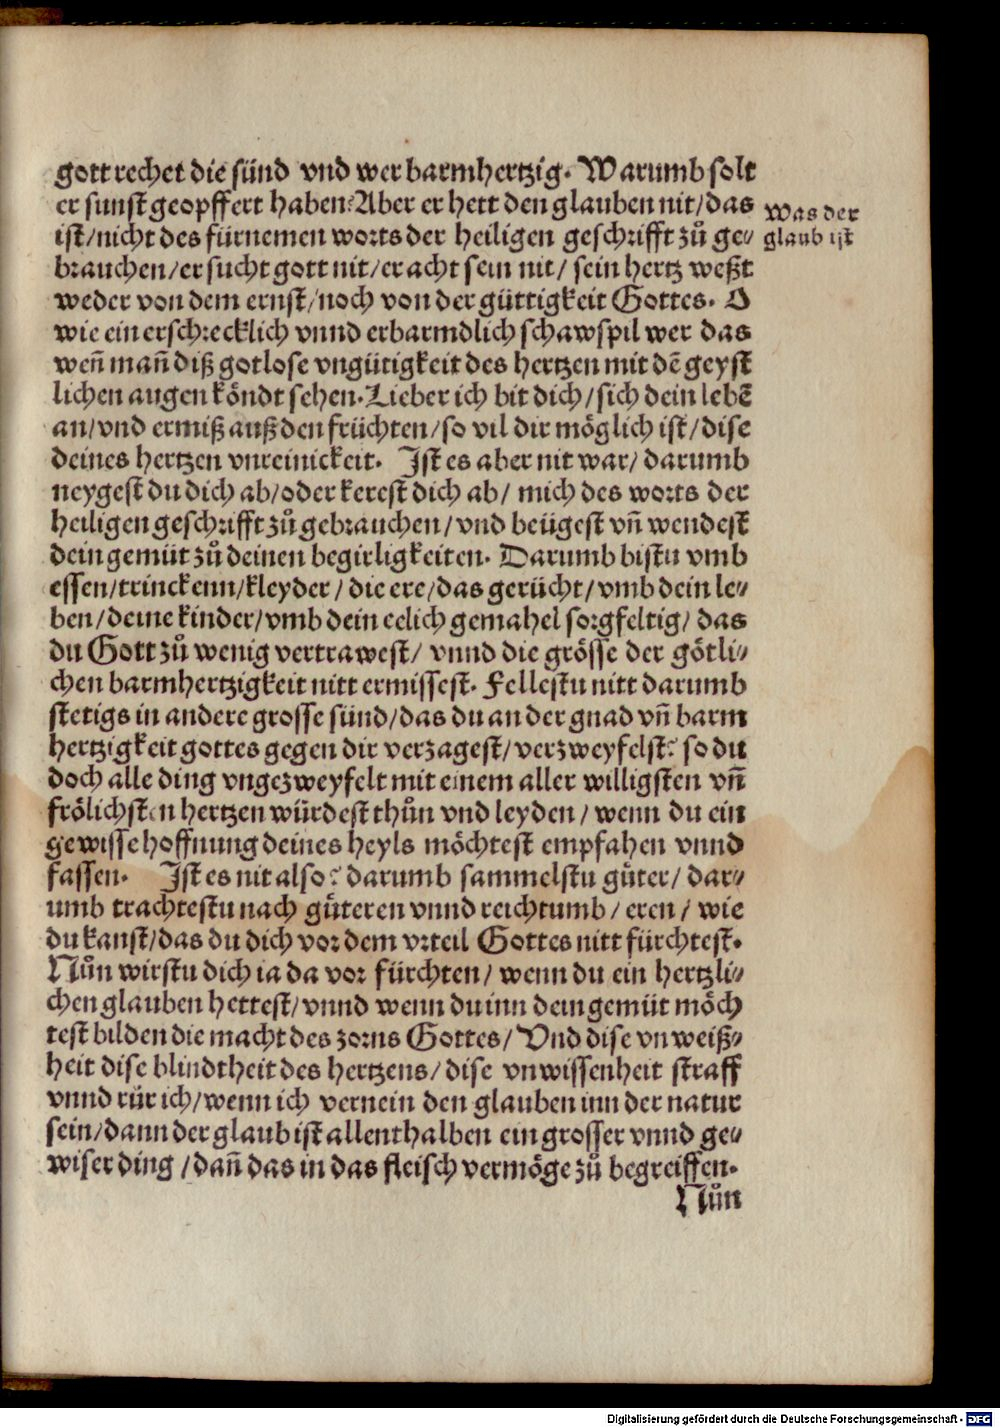 gott rechet die sünd vnd wer barmhertzig. Warumb solt
er sunst geopffert haben? Aber er hett den glauben nit/das
ist/nicht des fürnemen worts der heiligen geschrifft zů ge⸗
brauchen/er sucht gott nit/er acht sein nit/ sein hertz weßt
weder von dem ernst/noch von der güttigkeit Gottes. O
wie ein erschrecklich vnnd erbarmdlich schawspil wer das
weñ mañ diß gotlose vngütigkeit des hertzen mit dē geyst
lichen augen köndt sehen. Lieber ich bit dich/sich dein lebē
an/vnd ermiß auß den früchten/so vil dir möglich ist/dise
deines hertzen vnreinickeit. Ist es aber nit war/ darumb
neygest du dich ab/oder kerest dich ab/ mich des worts der
heiligen geschrifft zů gebrauchen/vnd beügest vñ wendest
dein gemüt zů deinen begirligkeiten. Darumb bistu vmb
essen/trinckenn/kleyder/ die ere/das gerücht/vmb dein le⸗
ben/deine kinder/vmb dein eelich gemahel sorgfeltig/ das
du Gott zů wenig vertrawest/ vnnd die grösse der götli⸗
chen barmhertzigkeit nitt ermissest. Fellestu nitt darumb
stetigs in andere grosse sünd/das du an der gnad vñ barm
hertzigkeit gottes gegen dir verzagest/verzweyfelst? so du
doch alle ding vngezweyfelt mit einem aller willigsten vñ
frölichsten hertzen würdest thůn vnd leyden/ wenn du ein
gewisse hoffnung deines heyls möchtest empfahen vnnd
fassen. Ist es nit also? darumb sammelstu gůter/ dar⸗
umb trachtestu nach gůteren vnnd reichtumb/ eren/ wie
du kanst/das du dich vor dem vrteil Gottes nitt fürchtest.
Nůn wirstu dich ia da vor fürchten/ wenn du ein hertzli⸗
chen glauben hettest/vnnd wenn du inn dein gemüt möch
test bilden die macht des zorns Gottes/ Vnd dise vnweiß⸗
heit dise blindtheit des hertzens/ dise vnwissenheit straff
vnnd rür ich/wenn ich vernein den glauben inn der natur
sein/dann der glaub ist allenthalben ein grosser vnnd ge⸗
wiser ding/dañ das in das fleisch vermöge zů begreiffen.
Nůn
Was der
glaub ist
Digitalisierung gefördert durch die Deutsche Forschungsgemeinschaft - DFG